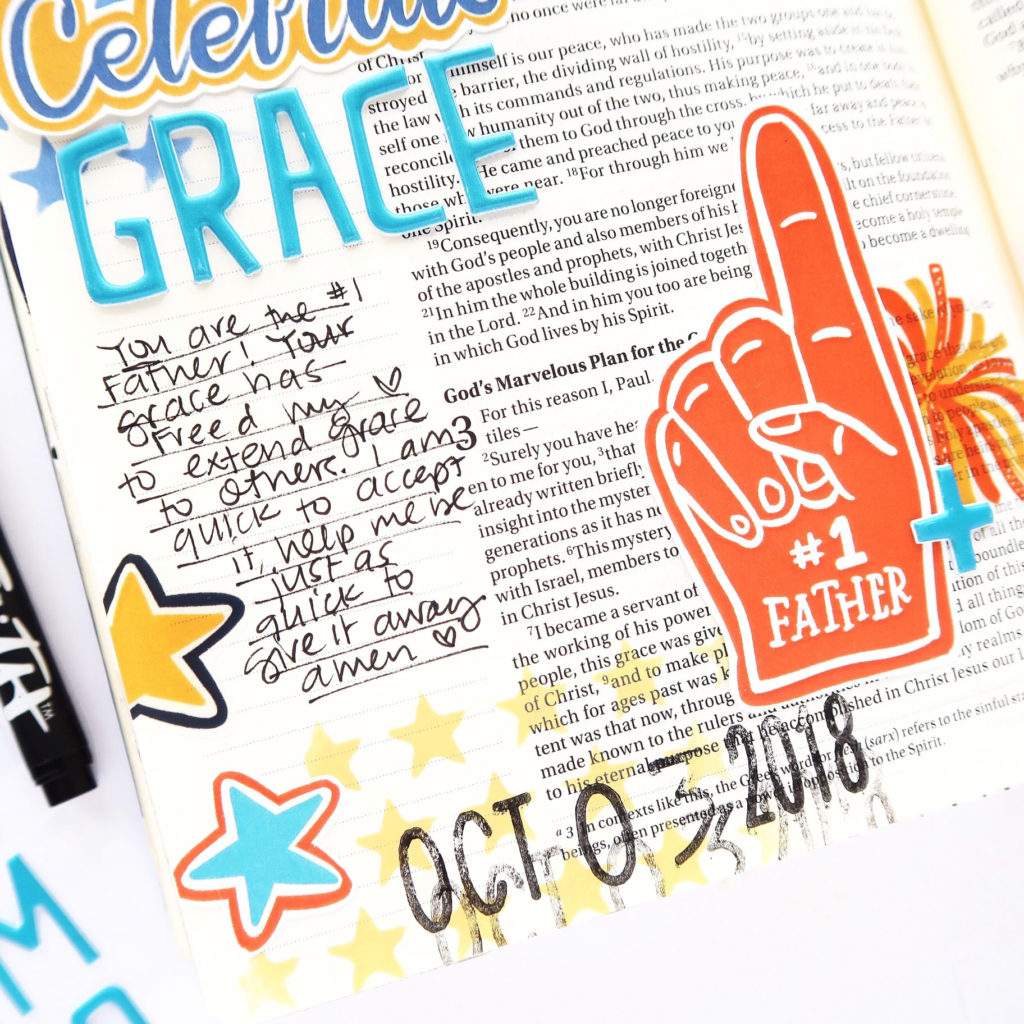 Celebrate
GRACE
You are the #1
Father! Your
grace has
freed my ♡
to extend grace
to others. I am
quick to accept
it, help me be
just as
quick to
give it away
amen ♡
who once were far
of Christ
himself is our peace, who has made the two groups one and has
stroyed the barrier, the dividing wall of hostility, ¹⁵by setting aside in his flesh
the law with its commands and regulations. His purpose was to create in
self one new humanity out of the two, thus making peace, ¹⁶and in one body
reconcile of them to God through the cross, by which he put to death their
hostility. He came and preached peace to you far away and peace
those who were near. ¹⁸For through him we cess to the Father
one Spirit.
¹⁹Consequently, you are no longer foreigne s, but fellow citizens
with God's people and also members of his h ilt on the foundation
of the apostles and prophets, with Christ Jes e chief cornerstone.
²¹In him the whole building is joined togeth ecome a holy temple
in the Lord. ²²And in him you too are being o become a dwelling
in which God lives by his Spirit.
God's Marvelous Plan for the G
3 For this reason I, Paul
tiles—
²Surely you have hea
en to me for you, ³that
already written briefly
insight into the mystery
generations as it has no
prophets. ⁶This mystery
with Israel, members to
in Christ Jesus.
⁷I became a servant of
the working of his power
people, this grace was give
of Christ, ⁹and to make pl
which for ages past was k
tent was that now, throug
made known to the rulers and authorities in realms,
to his eternal purpose that he accomplished in Christ Jesus our L
ᵃ 3 In contexts like this, the Greek word for (sarx) refers to the sinful sta
beings, often presented as a power in opposition to the Spirit.
God
#1
FATHER
OCT 03 2018